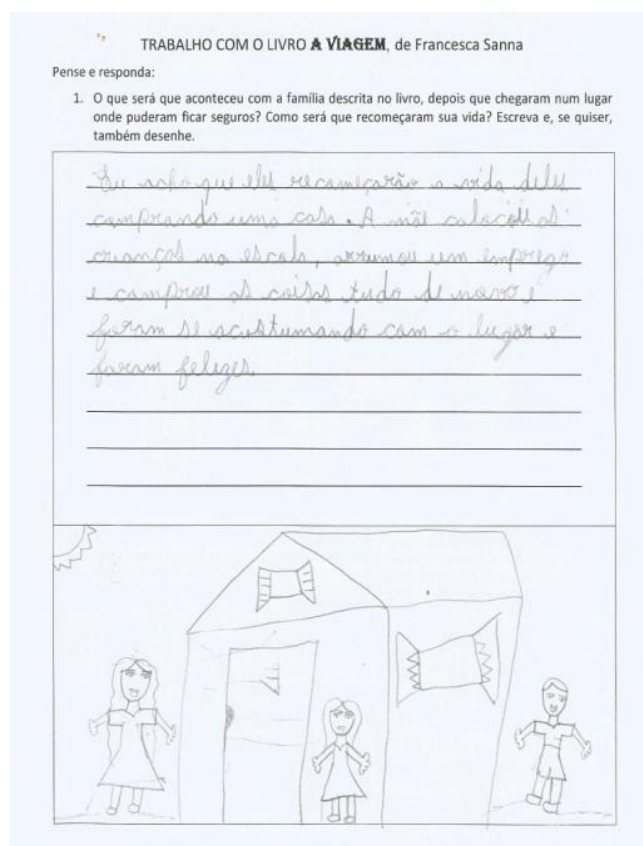 TRABALHO COM O LIVRO A VIAGEM, de Francesca Sanna
Pense e responda:
1. O que será que aconteceu com a família descrita no livro, depois que chegaram num lugar
onde puderam ficar seguros? Como será que recomeçaram sua vida? Escreva e, se quiser,
também desenhe.
Eu acho que eles recomeçarão a vida deles
comprando uma casa. A mãe colocou as
crianças na escola, arrumou um emprego
e comprou as coisas tudo de novo e
foram se acustumando com o lugar e
foram felizes.